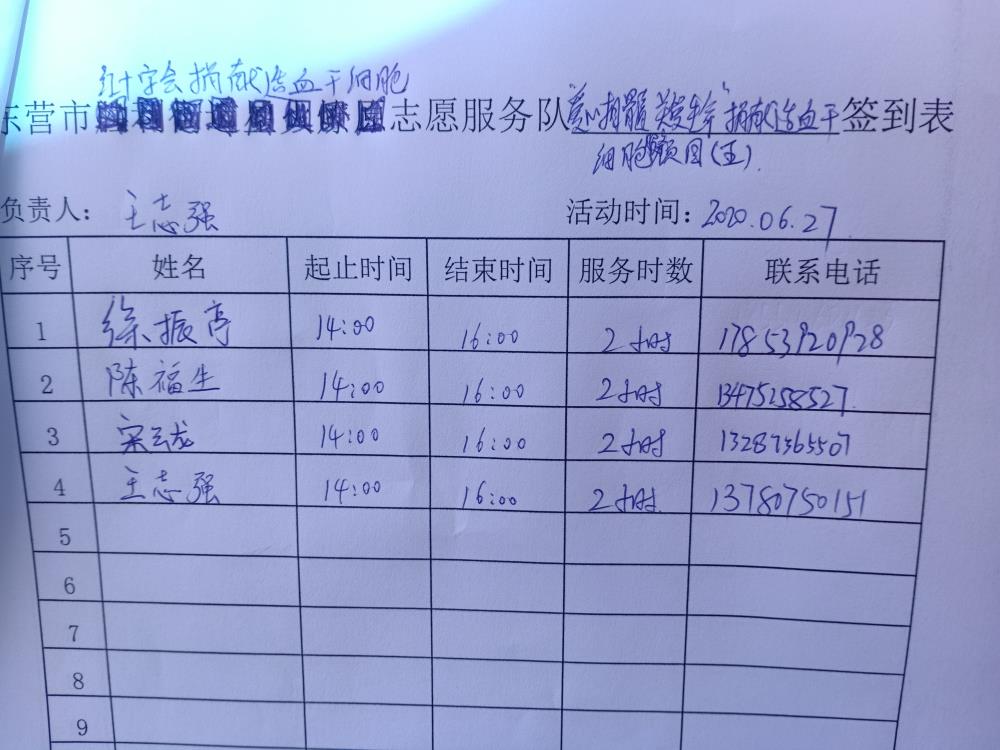 红十字会捐献造血干细胞
东营市志愿服务队"爱心捐髓 救生命"捐献造血干签到表
细胞项目(五).
负责人: 王志强 活动时间: 2020.06.27
序号 姓名 起止时间 结束时间 服务时数 联系电话
1 徐振亭 14:00 16:00 2小时 17853920928
2 陈福生 14:00 16:00 2小时 13475258527
3 宋云龙 14:00 16:00 2小时 13287365507
4 王志强 14:00 16:00 2小时 13780750151
5
6
7
8
9